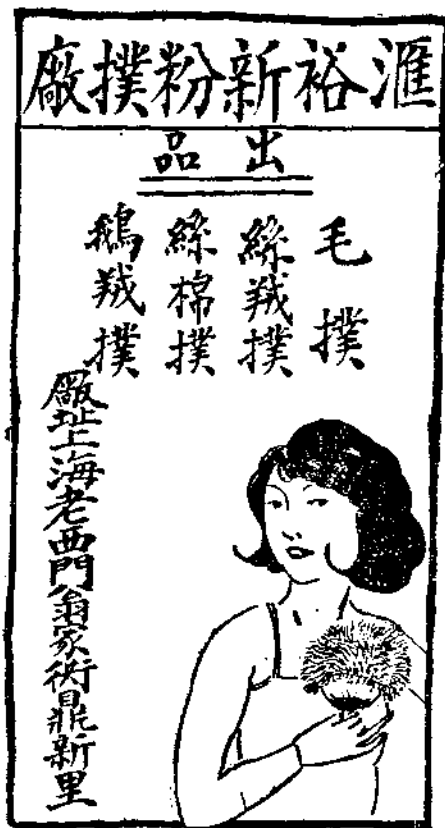 滙裕新粉撲廠
出品
毛撲
絲羢撲
絲棉撲
鵝羢撲
廠址上海老西門翁家衖鼎新里